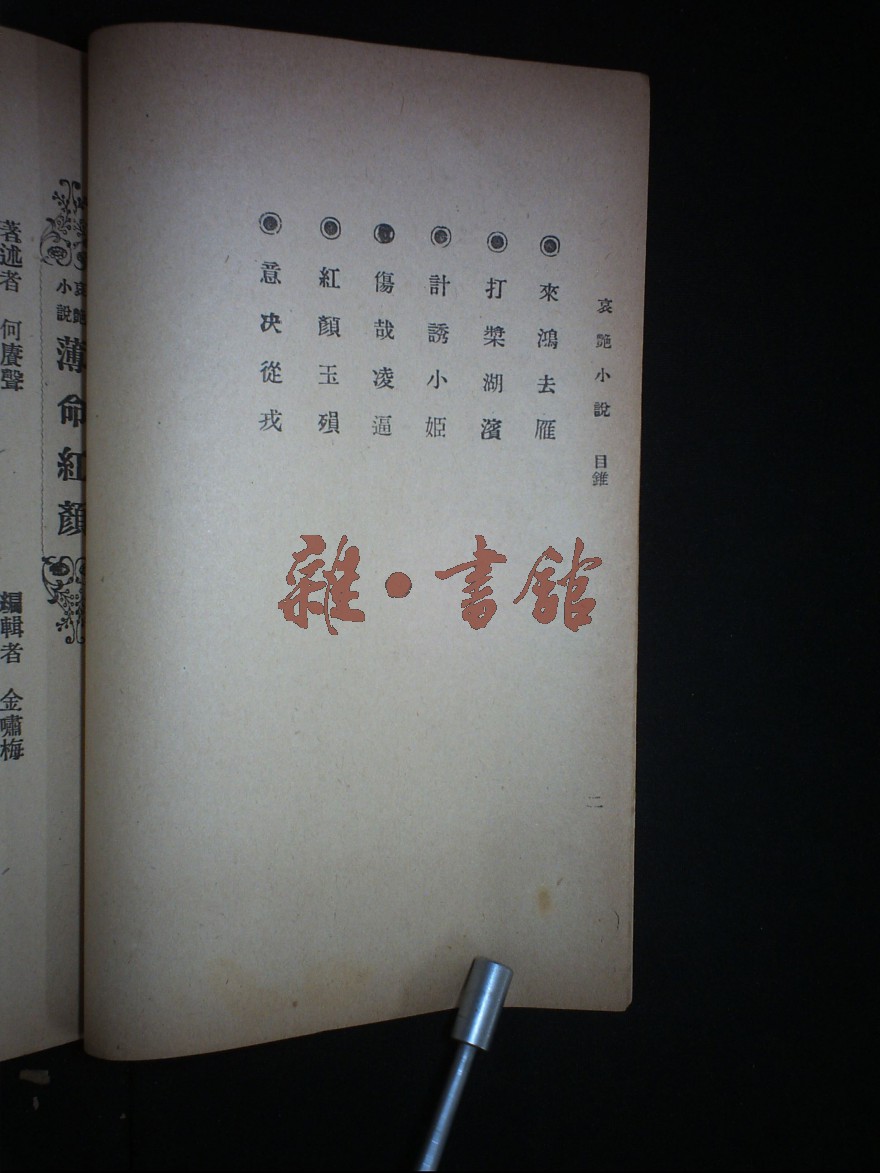 哀艷小說 目錐
二
◉來鴻去雁
◉打槳湖濱
◉計誘小姬
◉傷哉凌逼
◉紅顏玉殞
◉意决從戎
雜•書館
哀艷
小說
薄命紅顏
著述者 何賡聲 編輯者 金嘯梅